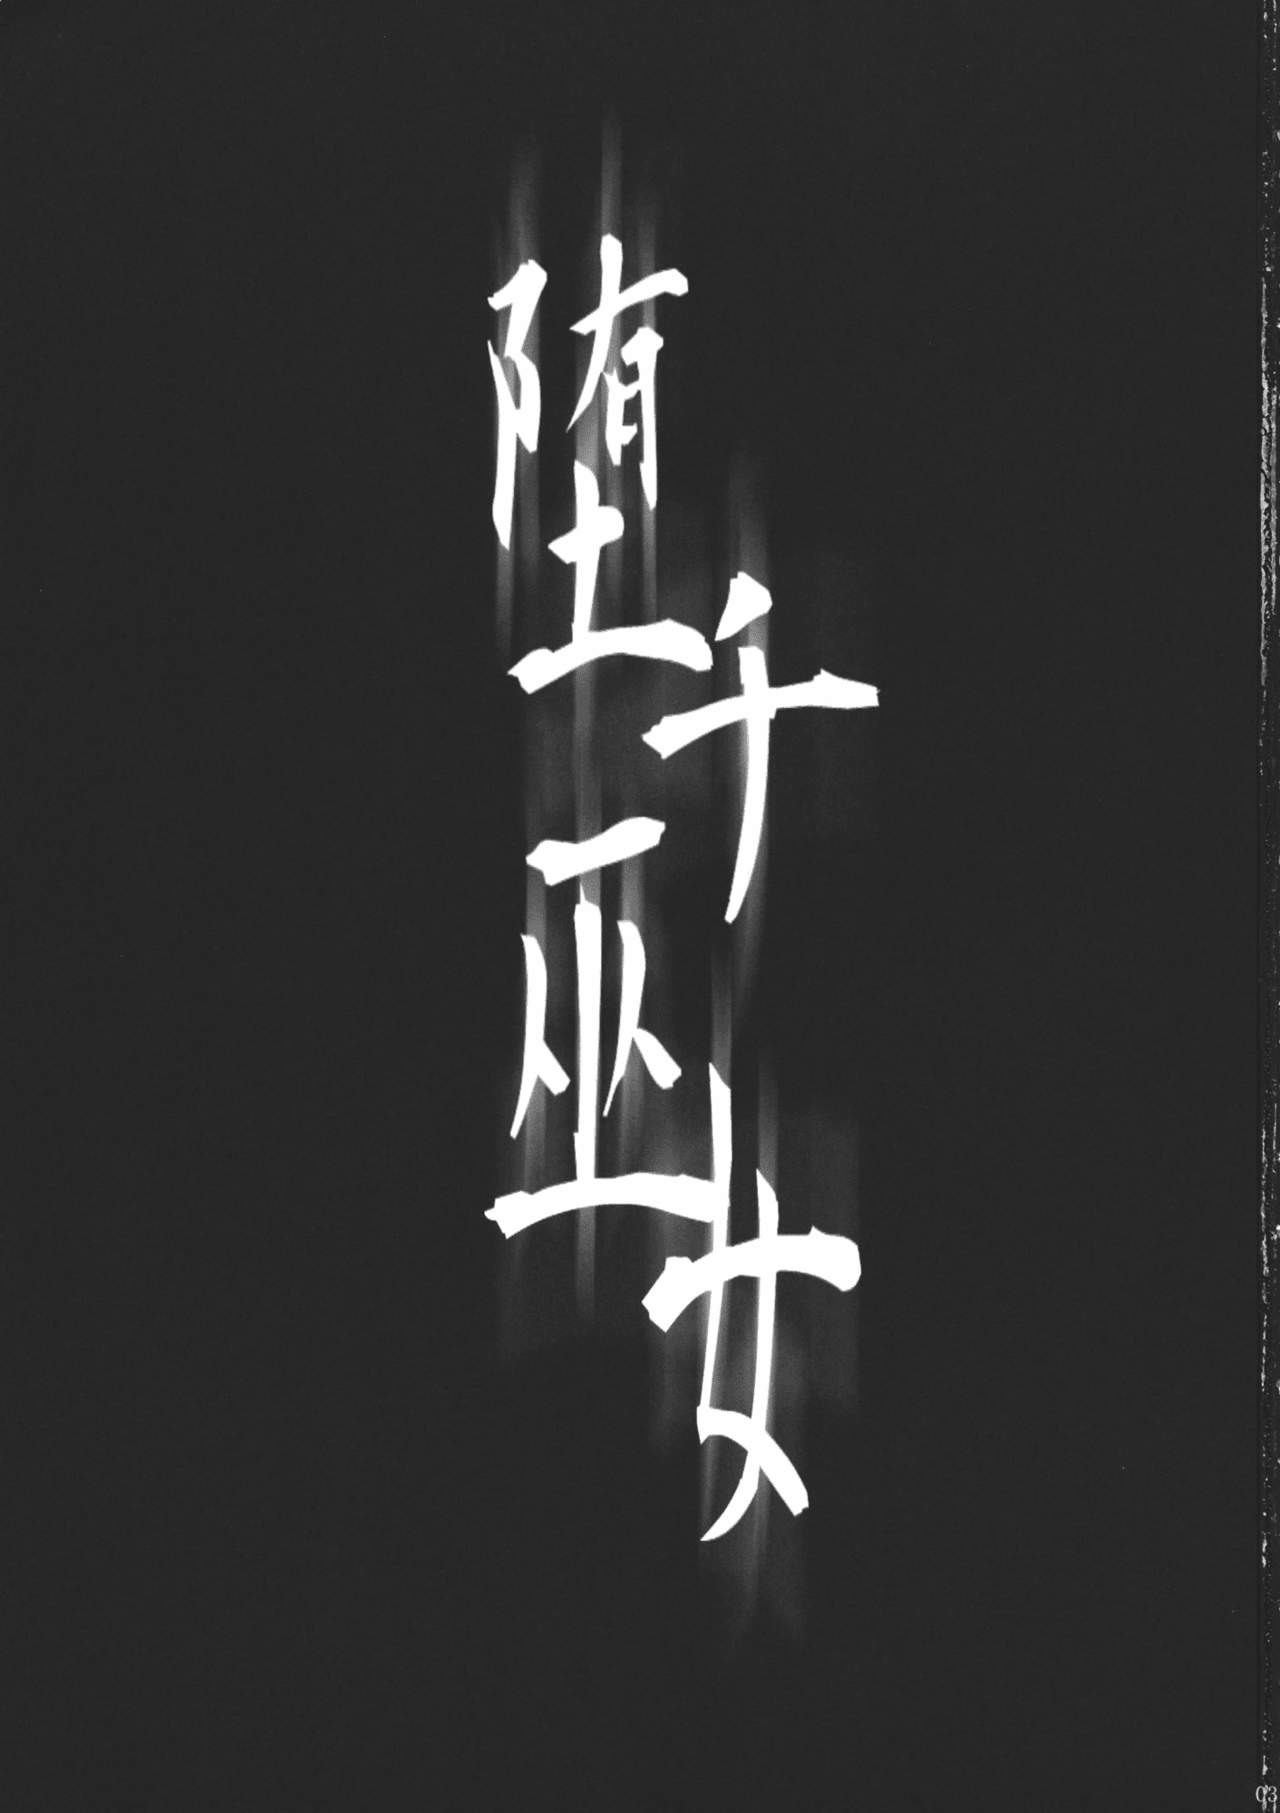 堕チ巫女
03